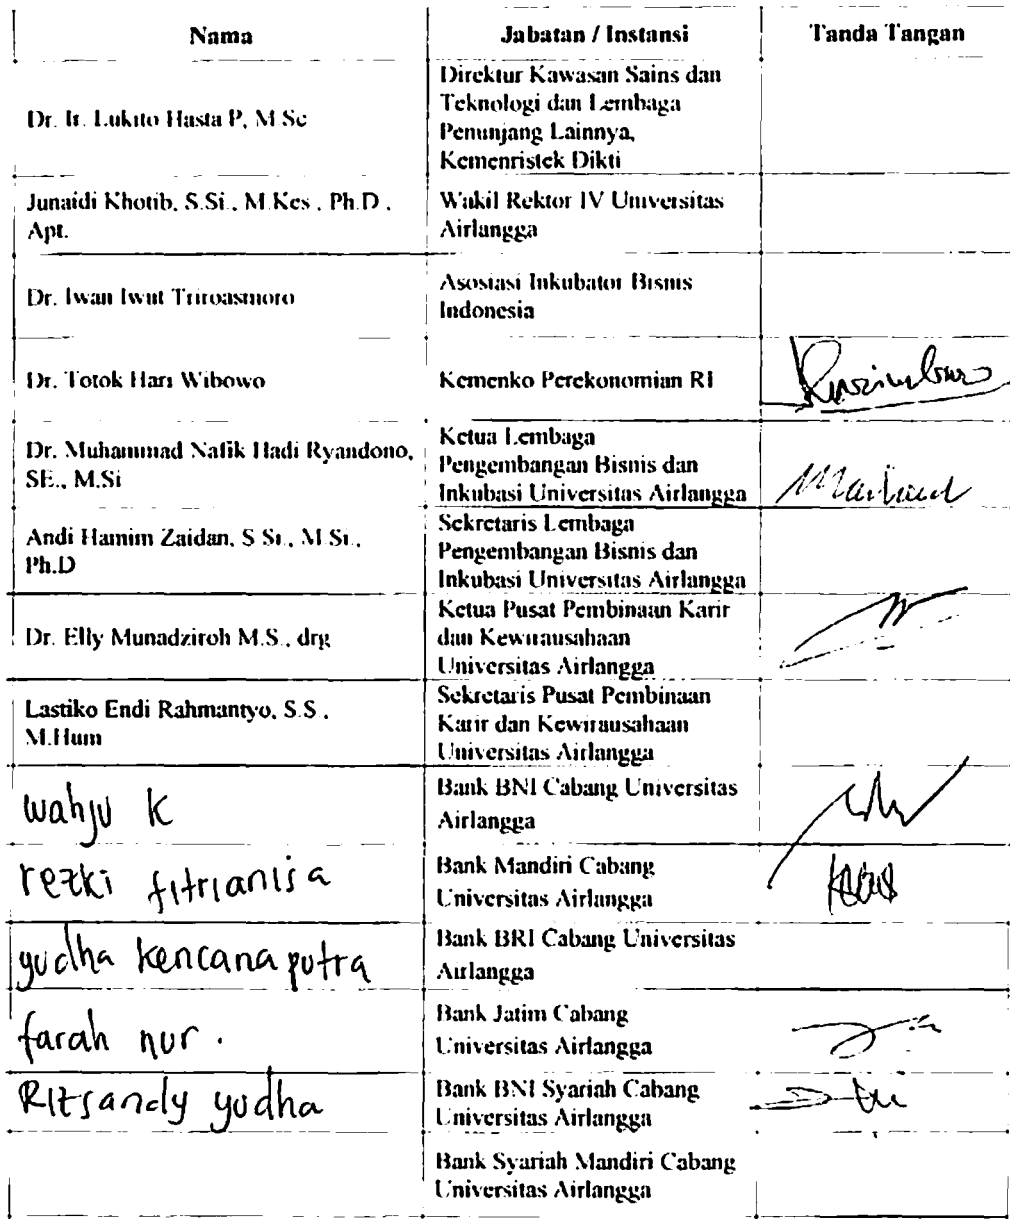 Nama Jabatan / Instansi Tanda Tangan
Dr. Ir. Lukito Hasta P, M.Sc
Direktur Kawasan Sains dan
Teknologi dan Lembaga
Penunjang Lainnya,
Kemenristek Dikti
Junaidi Khotib, S.Si., M.Kes., Ph.D.,
Apt.
Wakil Rektor IV Universitas
Airlangga
Dr. Iwan Iwut Tritoasmoro
Asosiasi Inkubator Bisnis
Indonesia
Dr. Totok Hari Wibowo
Kemenko Perekonomian RI
Dr. Muhammad Nafik Hadi Ryandono,
SE., M.Si
Ketua Lembaga
Pengembangan Bisnis dan
Inkubasi Universitas Airlangga
Andi Hamim Zaidan, S.Si., M.Si.,
Ph.D
Sekretaris Lembaga
Pengembangan Bisnis dan
Inkubasi Universitas Airlangga
Dr. Elly Munadziroh M.S., drg
Ketua Pusat Pembinaan Karir
dan Kewirausahaan
Universitas Airlangga
Lastiko Endi Rahmantyo, S.S.,
M.Hum
Sekretaris Pusat Pembinaan
Karir dan Kewirausahaan
Universitas Airlangga
Wahju K
Bank BNI Cabang Universitas
Airlangga
rezki fitrianisa
Bank Mandiri Cabang
Universitas Airlangga
yudha kencana putra
Bank BRI Cabang Universitas
Airlangga
farah nur.
Bank Jatim Cabang
Universitas Airlangga
Rizsandy yudha
Bank BNI Syariah Cabang
Universitas Airlangga
Bank Syariah Mandiri Cabang
Universitas Airlangga